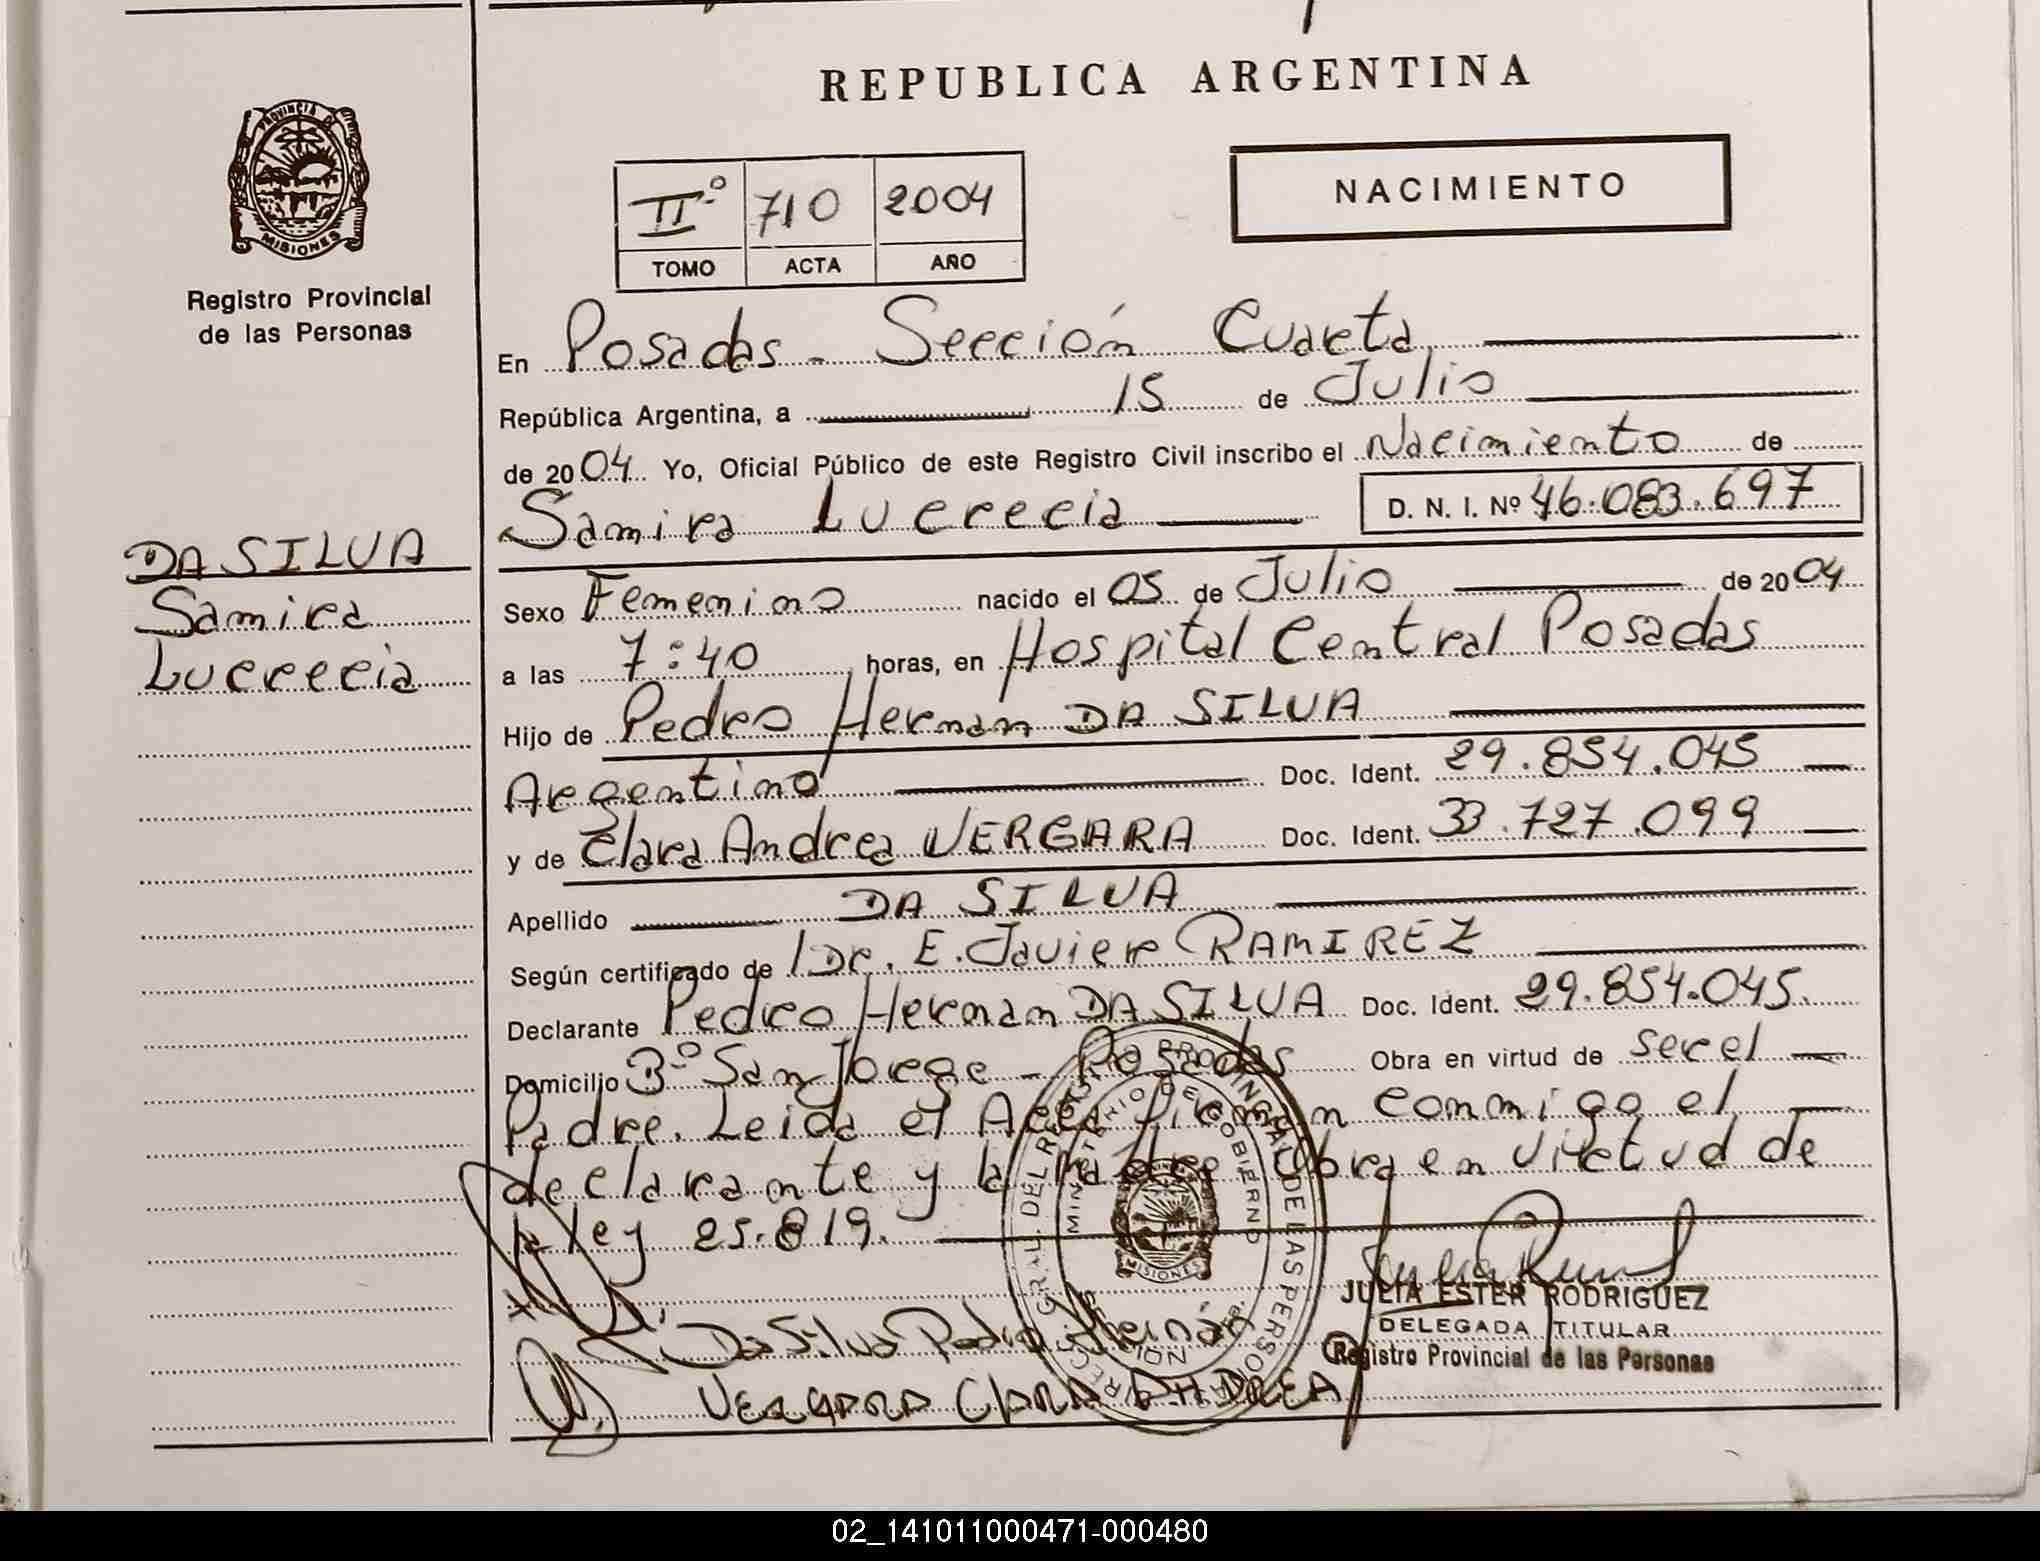 REPUBLICA ARGENTINA
PROVINCIA DE
MISIONES
Registro Provincial
de las Personas
NACIMIENTO
IIº 710 2004
TOMO ACTA AÑO
En Posadas - Sección Cuarta
República Argentina, a 15 de Julio
de 2004 Yo, Oficial Público de este Registro Civil inscribo el Nacimiento de
Samira Lucrecia D. N. I. Nº 46.083.697
DA SILVA
Samira
Lucrecia
Sexo Femenino nacido el 05 de Julio de 2004
a las 7:40 horas, en Hospital Central Posadas
Hijo de Pedro Hernan DA SILVA
Argentino Doc. Ident. 29.854.045
y de Clara Andrea VERGARA Doc. Ident. 33.727.099
Apellido DA SILVA
Según certificado de Dr. E. Javier RAMIREZ
Declarante Pedro Hernan DA SILVA Doc. Ident. 29.854.045.
Domicilio Bº San Jorge - Posadas Obra en virtud de ser el
Padre. Leida el Acta firman conmigo el
declarante y la madre Obra en virtud de
la ley 25.819.
Da Silva Pedro Hernán
VERGARA CLARA ANDREA
JULIA ESTER RODRIGUEZ
DELEGADA TITULAR
Registro Provincial de las Personas
MINISTERIO DE GOBIERNO
MISIONES
02_141011000471-000480